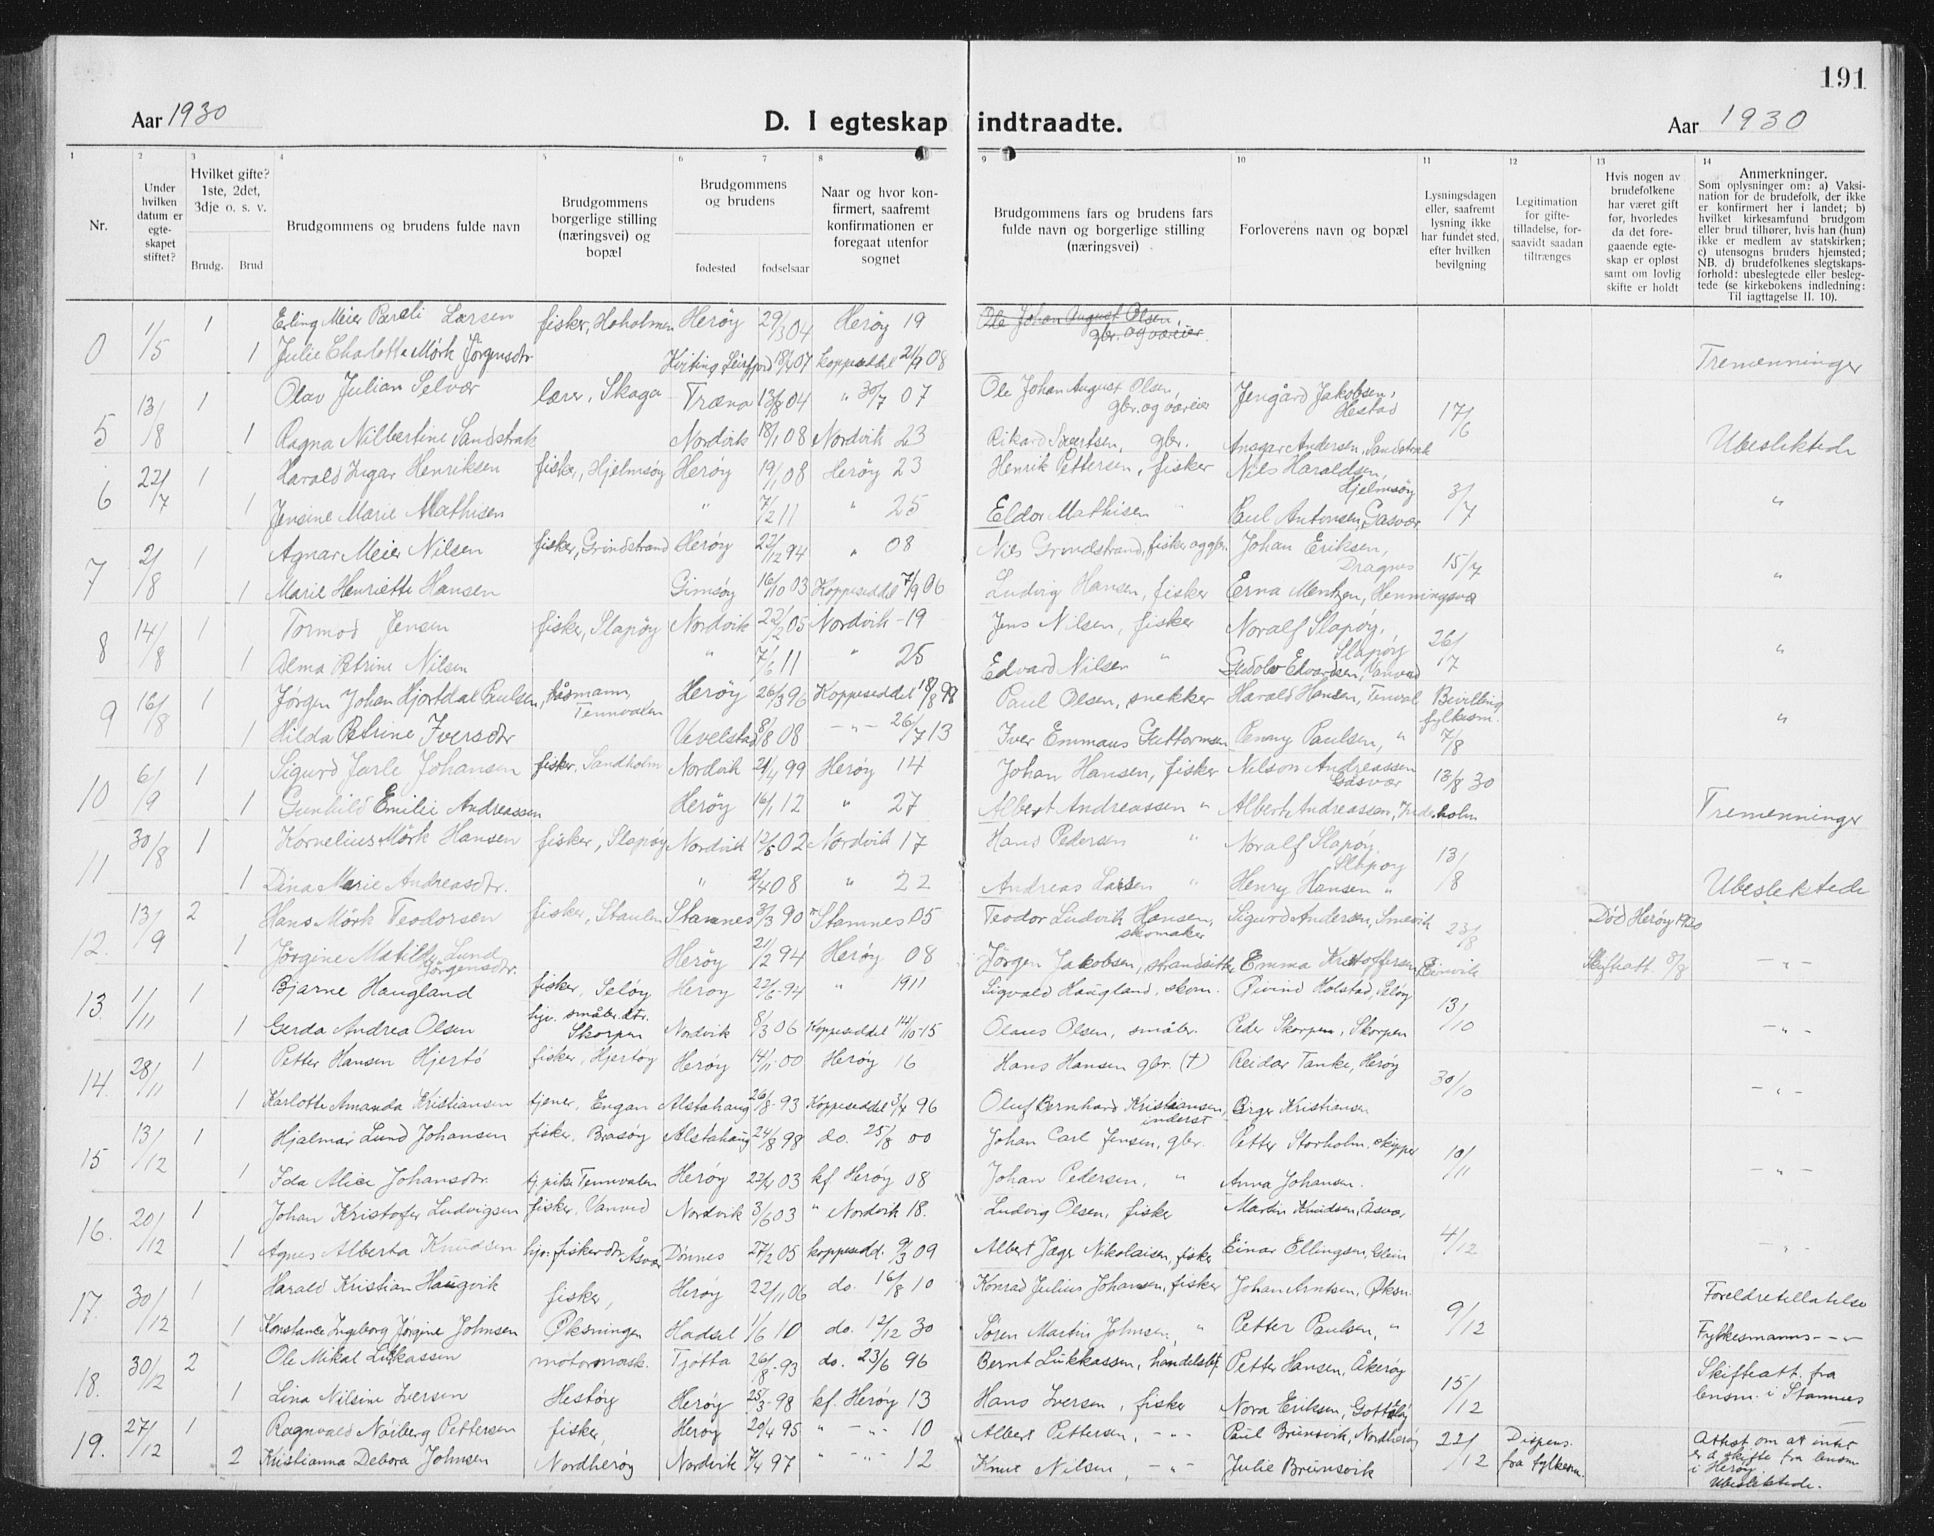 191
Aar 1930
D. I egteskap indtraadte.
Aar 1930
1 2 3 4 5 6 7 8 9 10 11 12 13 14
Nr.
Under hvilken datum er egte-skapet stiftet?
Hvilket gifte? 1ste, 2det, 3dje o. s. v.
Brudg. Brud
Brudgommens og brudens fulde navn
Brudgommens borgerlige stilling (næringsvei) og bopæl
Brudgommens og brudens
fødested fødselsaar
Naar og hvor kon-firmert, saafremt konfirmationen er foregaat utenfor sognet
Brudgommens fars og brudens fars fulde navn og borgerlige stilling (næringsvei)
Forloverens navn og bopæl
Lysningsdagen eller, saafremt lysning ikke har fundet sted, efter hvilken bevilgning
Legitimation for gifte-tilladelse, for-saavidt saadan tiltrænges
Hvis nogen av brudefolkene har været gift før, hvorledes da det fore-gaaende egte-skap er opløst samt om lovlig skifte er holdt
Anmerkninger.
Som oplysninger om: a) Vaksi-nation for de brudefolk, der ikke er konfirmert her i landet; b) hvilket kirkesamfund brudgom eller brud tilhører, hvis han (hun) ikke er medlem av statskirken; c) utensogns bruders hjemsted; NB. d) brudefolkenes slegtskaps-forhold: ubeslegtede eller besleg-tede (se kirkebokens indledning: Til iagttagelse II. 10).
0 1/5 1 Erling Meier Pareli Larsen fisker, Hoholmen Herøy 29/3 04 Herøy 19 Ole Johan August Olsen, gbr. og væreier
1 Julie Charlotte Mørk Jørgensdtr Leirfjord 18/1 07 koppeseddel 21/9 08 Tremenninger
5 13/8 1 Olav Julian Selvær lærer, Skaga Træna 13/8 04 " 30/7 07 Ole Johan August Olsen, gbr. og væreier Jengård Jakobsen, Hestad 17/6
1 Ragna Nilbertine Sandstrak Nordvik 18/1 08 Nordvik 23 Rikard Sivertsen, gbr. Ansgar Andersen, Sandstrak Ubeslektede
6 22/7 1 Harald Ingar Henriksen fisker, Hjelmsøy Herøy 19/1 08 Herøy 23 Henrik Pettersen, fisker Nils Haraldsen, Hjelmsøy 3/7
1 Jensine Marie Mathisen " 7/2 11 " 25 Eldor Mathisen " Paul Antonsen, Gåsvær "
7 2/8 1 Agnar Meier Nilsen fisker, Grindstrand Herøy 22/12 94 " 08 Nils Grindstrand, fisker og gbr. Johan Eriksen, Dragnes 15/7
1 Marie Henriette Hansen Gimsøy 16/10 03 Koppeseddel 7/9 06 Ludvig Hansen, fisker Erna Mentzen, Henningsvær "
8 14/8 1 Tormod Jensen fisker, Slapøy Nordvik 22/2 05 Nordvik 19 Jens Nilsen, fisker Noralf Slapøy, Slapøy 26/7
1 Alma Petrine Nilsen " 7/6 11 " 25 Edvard Nilsen " Gudolv Edvardsen, Vanved "
9 16/8 1 Jørgen Johan Hjortdal Paulsen, Tennvalen Herøy 26/3 96 Koppeseddel 18/8 98 Paul Olsen, snekker Harald Hansen, Tenval Bevilling fylkesm. 7/8
1 Hilda Petrine Iversdtr Vevelstad 8/8 08 - " - 26/7 13 Iver Emmaus Guttormsen Penny Paulsen, " "
10 6/9 1 Sigurd Jarle Johansen fisker, Sandholm Nordvik 21/4 99 Herøy 14 Johan Hansen, fisker Nelson Andreassen Gåsvær 13/8 30
1 Gunhild Emilie Andreassen Herøy 16/1 12 " 27 Albert Andreassen " Albert Andreassen, Tremenninger
11 30/8 1 Kornelius Mørk Hansen fisker, Slapøy Nordvik 12/5 02 Nordvik 17 Hans Pedersen " Noralf Slapøy, Slapøy 13/8
1 Dina Marie Andreasdtr. " 2/4 08 " 22 Andreas Larsen " Henry Hansen " Ubeslektede
12. 13/9 2 Hans Mørk Teodorsen fisker, Staulen Stamnes 3/3 90 Stamnes 05 Teodor Ludvik Hansen, skomaker Sigurd Andersen, Smevik 23/8 Død Herøy 1920
1 Jørgine Matilde Lund Jørgensdtr. Herøy 21/2 94 Herøy 08 Jørgen Jakobsen, strandsitter Emma Kristoffersen, Skifteatt. 8/8 - " -
13 1/11 1 Bjarne Haugland fisker, Seløy Herøy 22/6 94 " 1911 Sigvald Haugland, skom. Øivind Holstad, Seløy 13/10
1 Gerda Andrea Olsen hjv. småbr. dtr. Skorpen Nordvik 8/3 06 Koppeseddel 14/10 15 Olaus Olsen, småbr. Peder Skorpen, Skorpen - " -
14. 28/11 1 Petter Hansen Hjertø fisker, Hjertøy Herøy 14/11 00 Herøy 16 Hans Hansen gbr. (†) Reidar Tanke, Herøy 30/10
1 Karlotte Amanda Kristiansen tjener, Engan Alstahaug 26/8 93 Koppeseddel 3/4 96 Oluf Bernhard Kristiansen, inderst Birger Kristiansen - " -
15 13/12 1 Hjalmar Lund Johansen fisker, Brasøy Alstahaug 24/8 98 do. 25/8 00 Johan Carl Jensen, gbr. Petter Storholm, skipper 10/11
1 Ida Alice Johansdtr. tj. pike Tennvalen Herøy 22/1 03 kf Herøy 08 Johan Pedersen, " Anna Johansen. - " -
16. 20/12 1 Johan Kristofer Ludvigsen fisker, Vanved Nordvik 3/6 03 " Nordvik 18. Ludvig Olsen, fisker Martin Knudsen, Åsvær 4/12
1 Agnes Alberta Knudsen hjv. fiskerdtr. Åsvær Dønnes 27/2 05 koppesedd. 9/3 09 Albert Jæger Nikolaisen, fisker Einar Ellingsen, Glein - " -
17. 30/12 1 Harald Kristian Haugvik fisker, Herøy 22/11 06 do. 16/8 10 Konrad Julius Johansen, fisker Johan Arntsen, Øksn. 9/12 Foreldretillatelse
1 Konstance Ingeborg Jørgine Johnsen Øksningen Hadsel 1/6 10 do. 12/12 30 Søren Martin Johnsen, " Petter Paulsen, " Fylkesmanns - " -
18. 30/12 2 Ole Mikal Lukassen motormask. Tjøtta 26/8 93 do. 23/6 96 Bernt Lukkassen, handelsbt. Petter Hansen, Åkerøy 15/12 Skifteatt. fra lensm. i Stamnes
1 Lina Nilsine Iversen Hestøy Herøy 25/3 98 kf. Herøy 13 Hans Iversen, fisker Nora Eriksen,
19. 27/12 1 Ragnvald Norberg Pettersen fisker, Herøy 20/4 95 " - " - 10 Albert Pettersen, - " - Paul Brunsvik, Nordherøy 22/12 Dispens. fra fylkesm. Attest om at intet er å skifte fra lensm i Herøy
2 Kristianna Debora Johnsen Nordherøy Nordvik 7/4 97 " - " 12 Knut Nilsen, - " - Julie Brunsvik Ubeslektede.